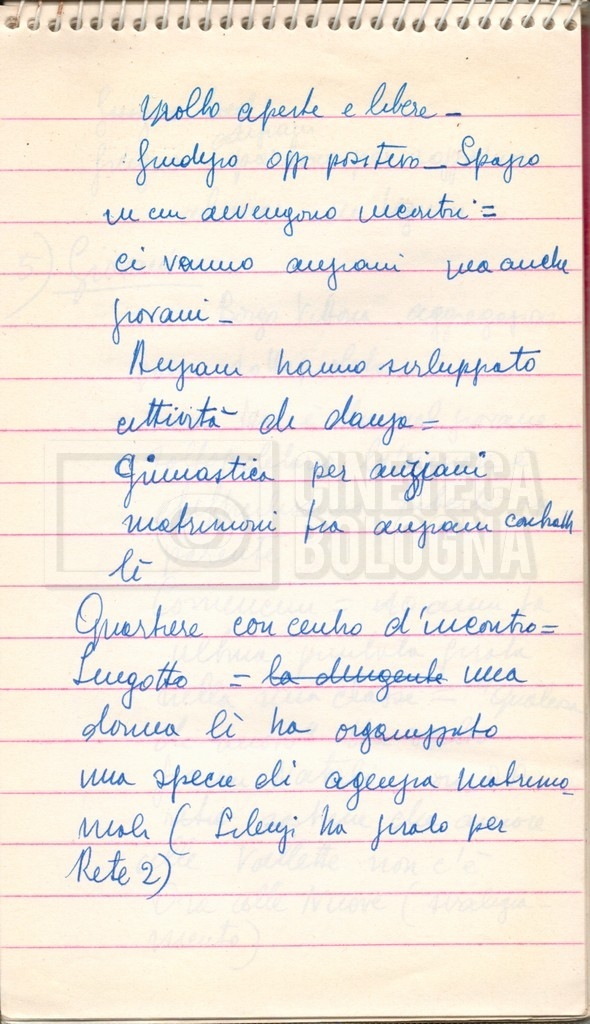 molto aperte e libere -
Giudizio opp positivo - Spazio
in cui avvengono incontri =
ci vanno anziani ma anche
giovani -
Anziani hanno sviluppato
attività di danza =
Ginnastica per anziani
matrimoni fra anziani contratti
lì
Quartiere con centro d'incontro =
Lingotto = la dirigente una
donna lì ha organizzato
una specie di agenzia matrimo-
niale ( Silenzi ha girato per
Rete 2)
CINETECA
BOLOGNA